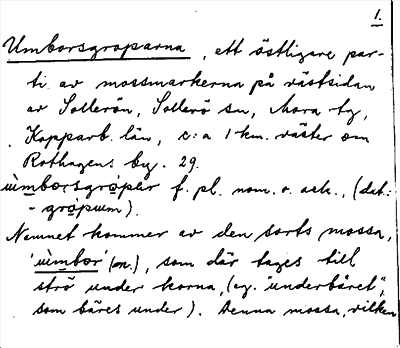 1.
Umborsgroparna, ett östligare par-
ti av mossmarkerna på västsidan
av Sollerön, Sollerö sn, Mora tg,
Kopparb. län, c:a 1 km. väster om
Rothagens by. 29.
ùmborsgrópär f. pl. nom. o. ack., (dat:
- grópum).
Namnet kommer av den sorts mossa,
'ùmbor' (m.), som där tages till
strö under korna, (eg. "underbäret",
som bäres under). Denna mossa, vilken